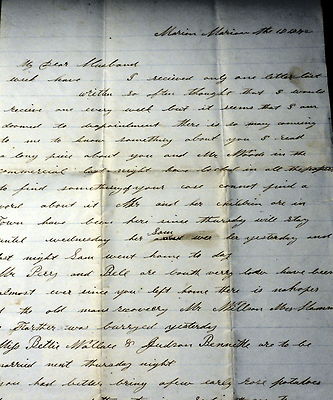 Marion Marion Nho 18
My Dear Husband
I received only one letter last
week have written so often thought that I would
recieve one every week but it seems that I am
doomed to disapointment there is so many coming
to me to know something about you I read
a long piece about you and Mr Woods in the
commercial last night have looked in all the papers
to find something of your case connot find a
word about it Mr and her children are in
Town have been here since thursday will stay
until wednesday her Sam was over her yesterday and
last night Sam went home to day
Mr Perry and Bell are bouth verry low have been
almost ever since you left home there is no hopes
of the old mans recovery Mr
Farther was burryed yesterday
Miss Bettie Wallace & Judson Bennette are to be
married next thursday night
you had better bring a few early rose potatoes